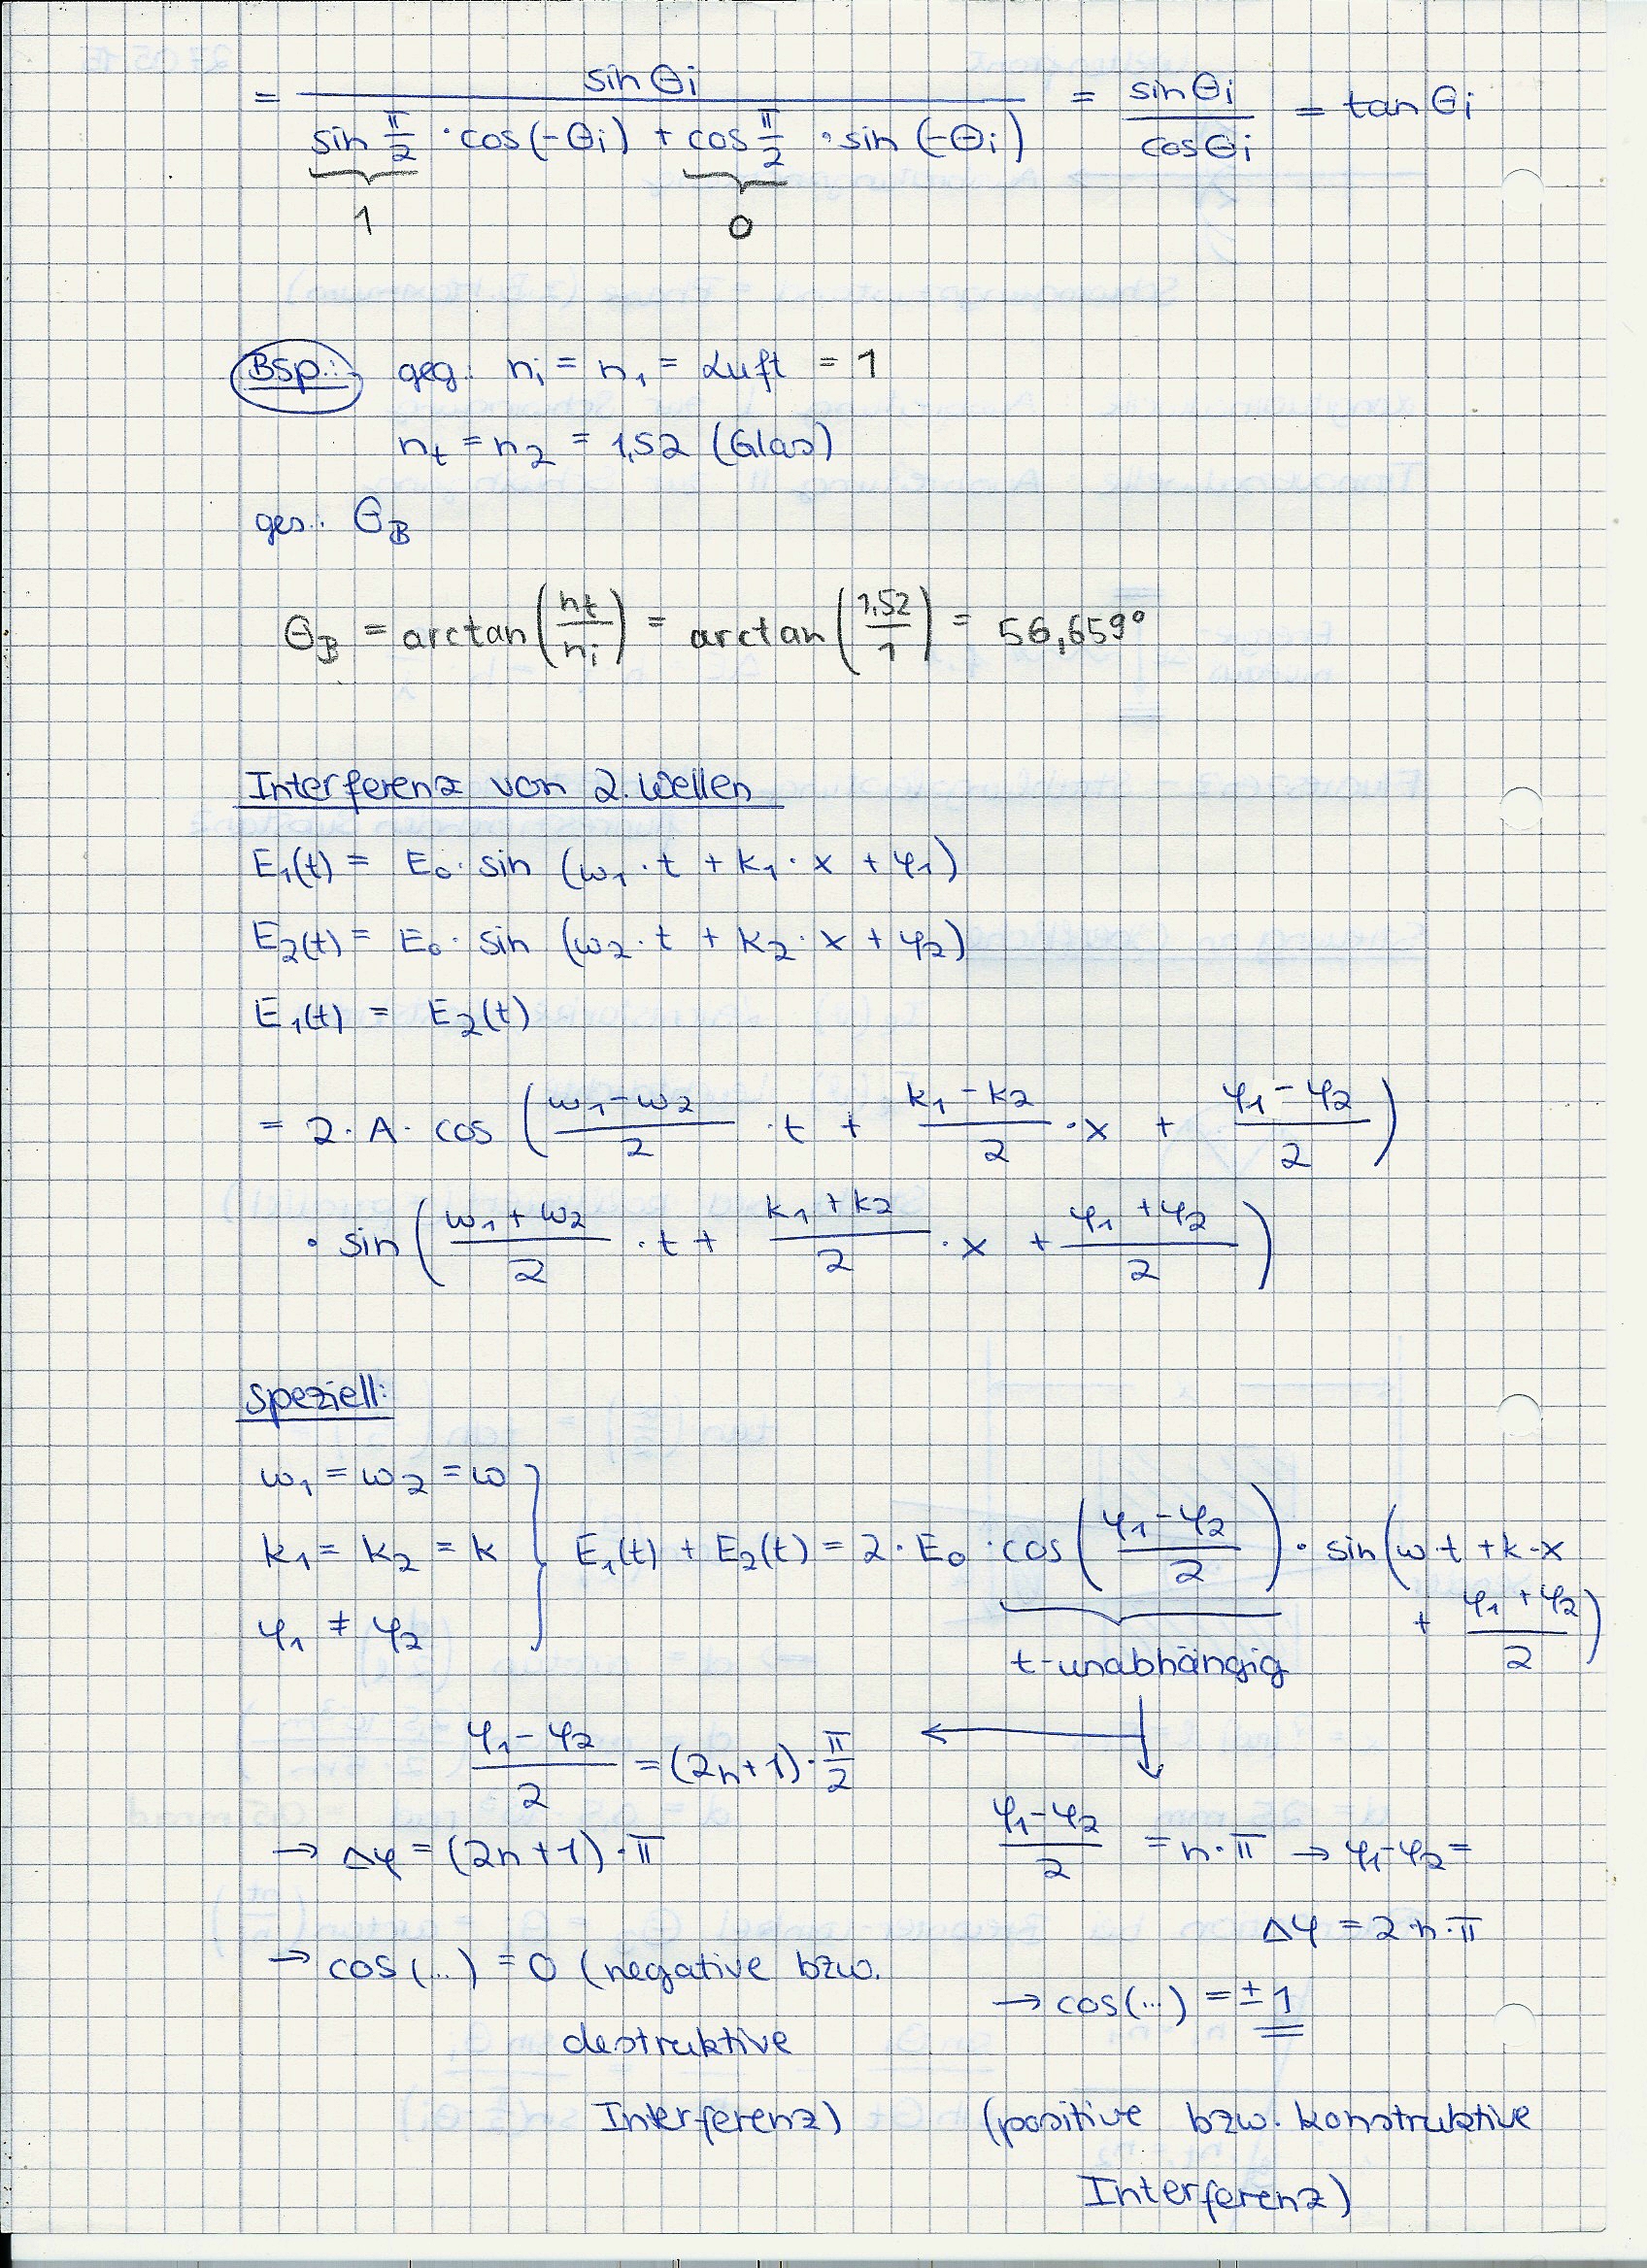 = sin Θi / (sin π/2 · cos(-Θi) + cos π/2 · sin(-Θi)) = sin Θi / cos Θi = tan Θi
1 0
Bsp.: geg.: ni = n1 = Luft = 1
nt = n2 = 1,52 (Glas)
ges.: ΘB
ΘB = arctan(nt/ni) = arctan(1,52/1) = 56,659°
Interferenz von 2. Wellen
E1(t) = E0 · sin (ω1 · t + k1 · x + φ1)
E2(t) = E0 · sin (ω2 · t + k2 · x + φ2)
E1(t) = E2(t)
= 2 · A · cos ((ω1-ω2)/2 · t + (k1-k2)/2 · x + (φ1-φ2)/2)
· sin ((ω1+ω2)/2 · t + (k1+k2)/2 · x + (φ1+φ2)/2)
speziell:
ω1 = ω2 = ω
k1 = k2 = k } E1(t) + E2(t) = 2 · E0 · cos((φ1-φ2)/2) · sin(ω·t + k·x
+ (φ1+φ2)/2)
φ1 ≠ φ2
t-unabhängig
(φ1-φ2)/2 = (2n+1) · π/2
→ Δφ = (2n+1) · π
(φ1-φ2)/2 = n · π → φ1-φ2 =
Δφ = 2·n·π
→ cos(...) = 0 (negative bzw.
destruktive
Interferenz)
→ cos(...) = ± 1
(positive bzw. konstruktive
Interferenz)